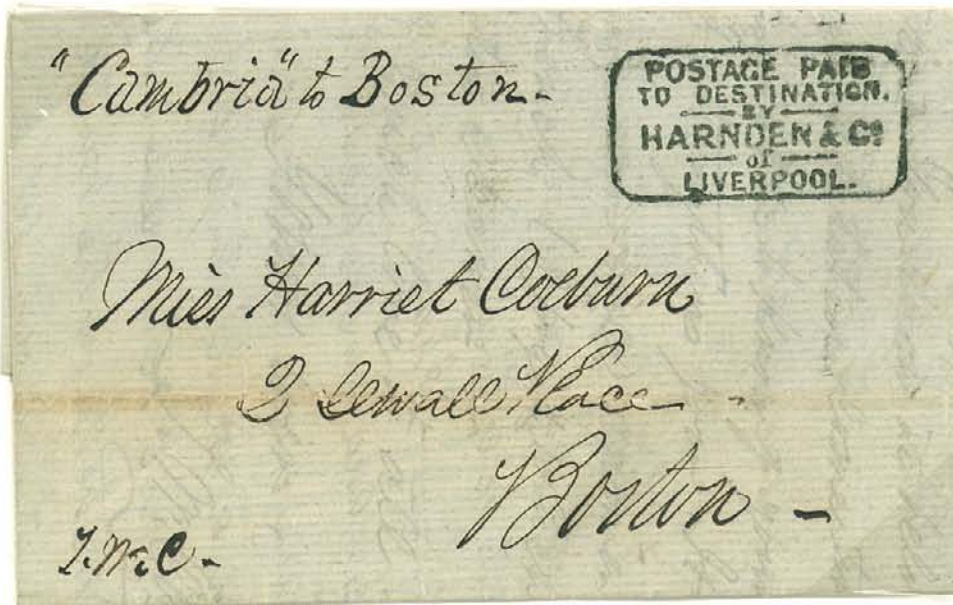 "Cambria" to Boston -
POSTAGE PAID
TO DESTINATION.
BY
HARNDEN & Co
of
LIVERPOOL.
Miss Harriet Colburn
2 Sewall Place
Boston -
T.W.C. -